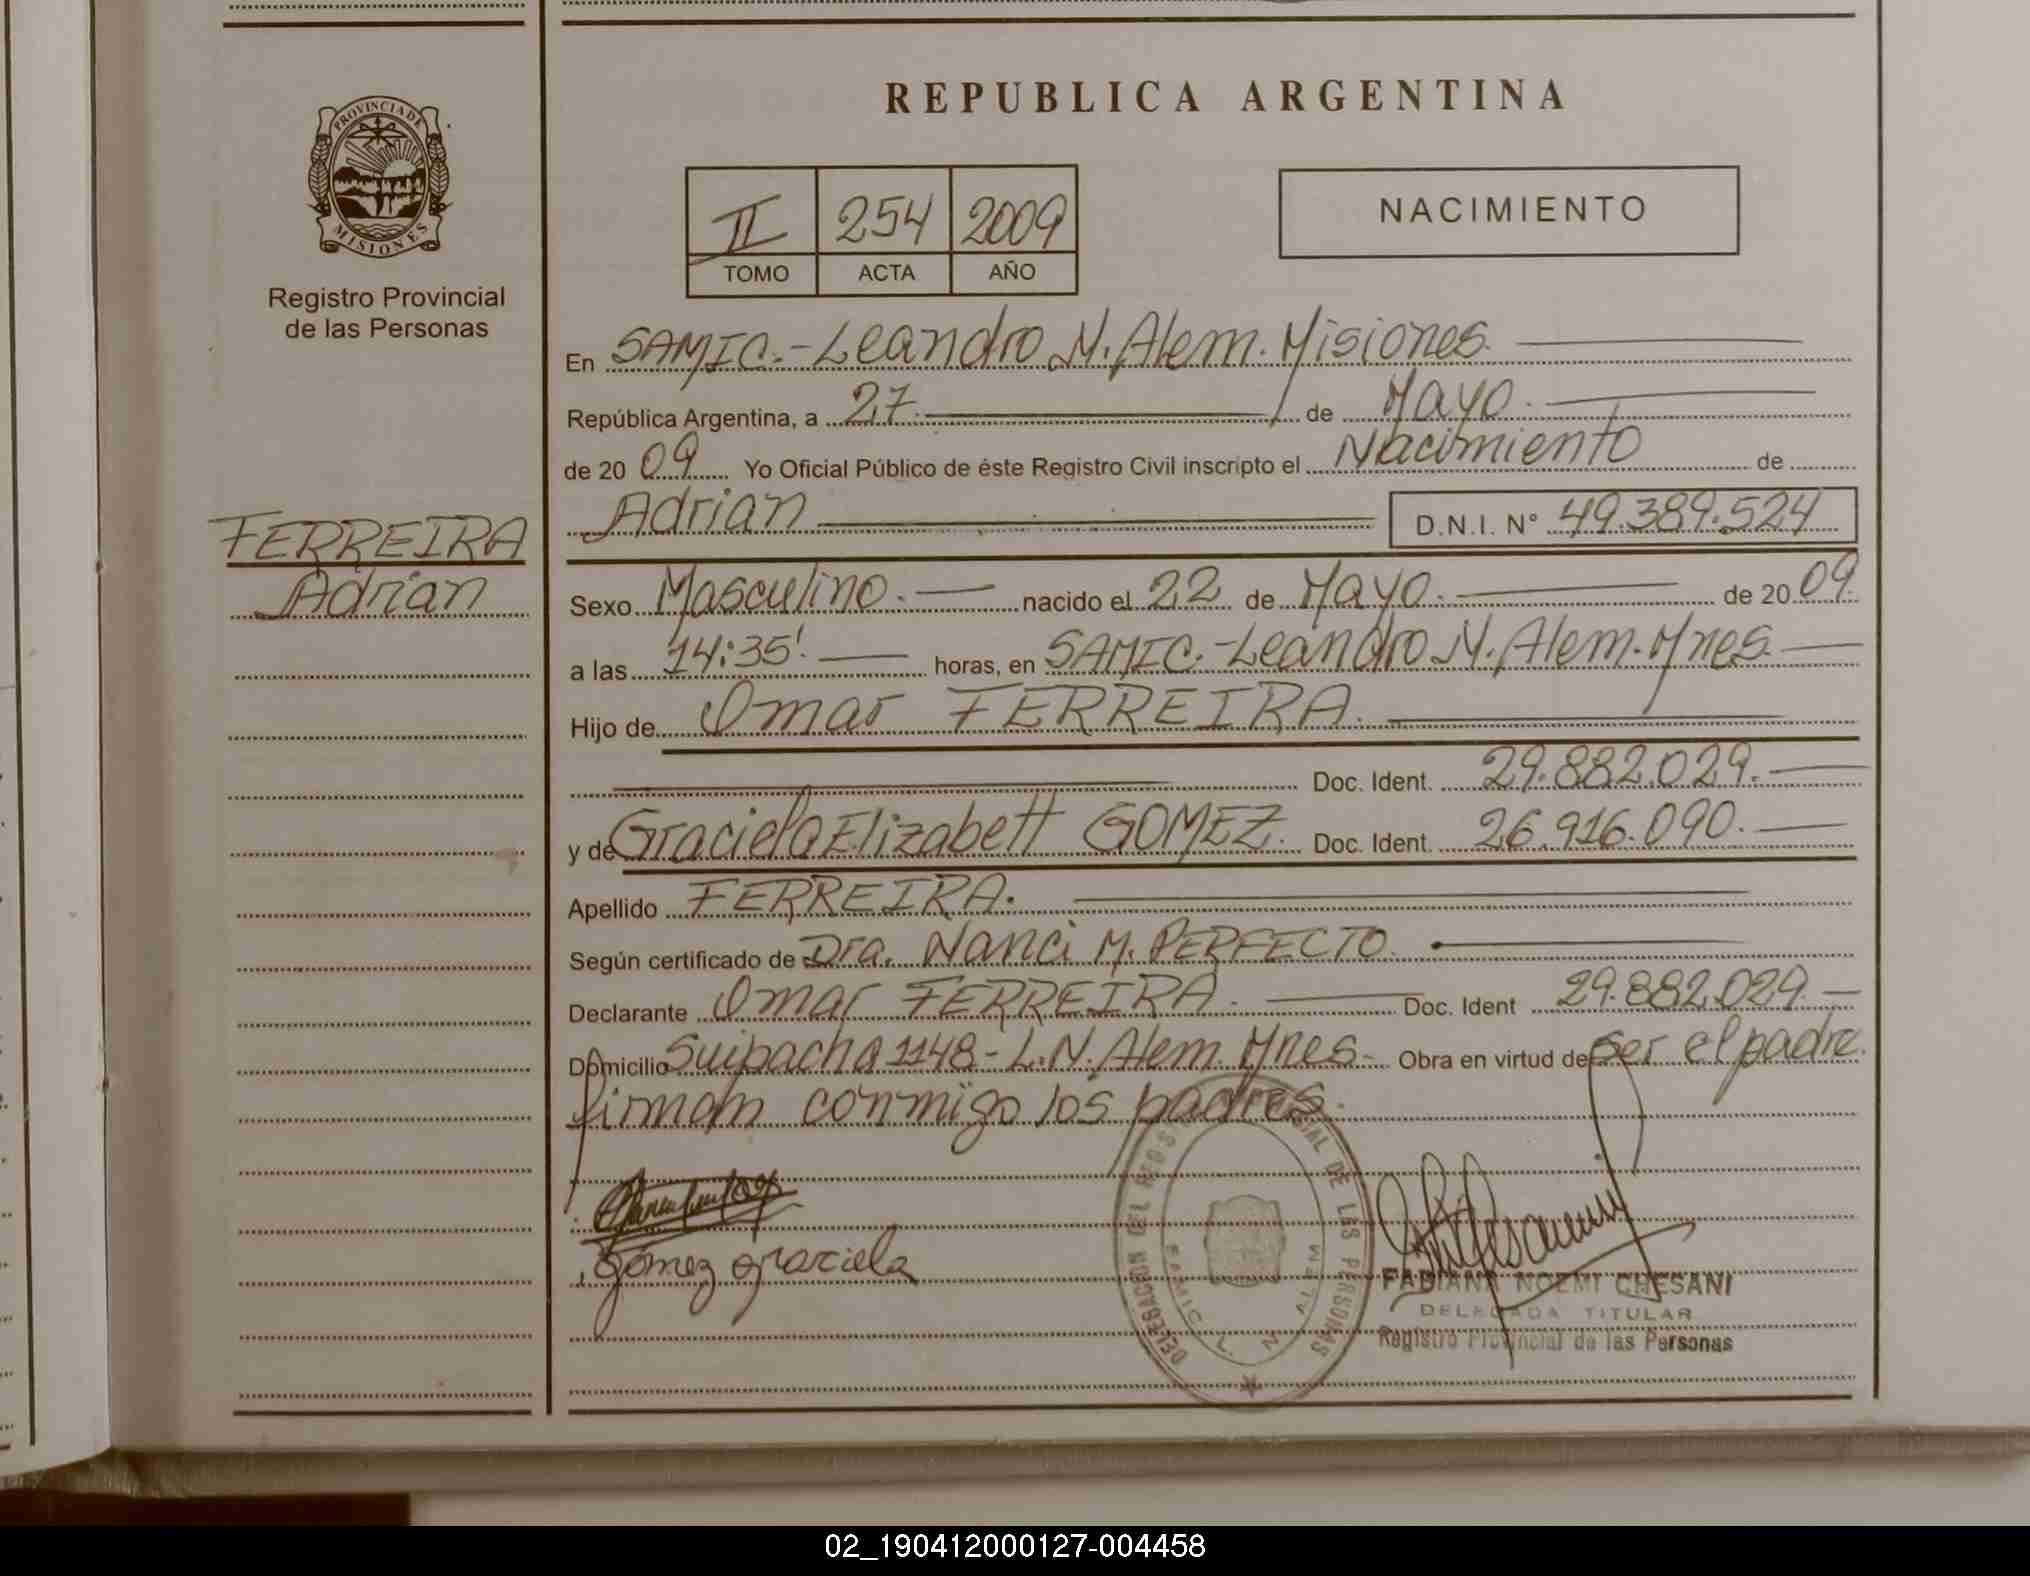 REPUBLICA ARGENTINA
PROVINCIA DE MISIONES
Registro Provincial
de las Personas
II 254 2009
TOMO ACTA AÑO
NACIMIENTO
En SAMIC.-Leandro N. Alem. Misiones.
República Argentina, a 27. de Mayo.
de 20 09. Yo Oficial Público de éste Registro Civil inscripto el Nacimiento de
Adrian D.N.I. N° 49.389.524
FERREIRA
Adrian
Sexo Masculino. nacido el 22 de Mayo. de 20 09.
a las 14:35'. horas, en SAMIC.-Leandro N. Alem. Mnes.
Hijo de Omar FERREIRA.
Doc. Ident. 29.882.029.
y de Graciela Elizabett GOMEZ. Doc. Ident. 26.916.090.
Apellido FERREIRA.
Según certificado de Dra. Nanci M. PERFECTO.
Declarante Omar FERREIRA. Doc. Ident 29.882.029.
Domicilio Suipacha 1148-L.N. Alem. Mnes.- Obra en virtud de ser el padre.
firman conmigo los padres.
Gomez graciela
DELEGACION DEL REGISTRO PROVINCIAL DE LAS PERSONAS
SAMIC L. N. ALEM
FABIANA NOEMI CHESANI
DELEGADA TITULAR
Registro Provincial de las Personas
02_190412000127-004458